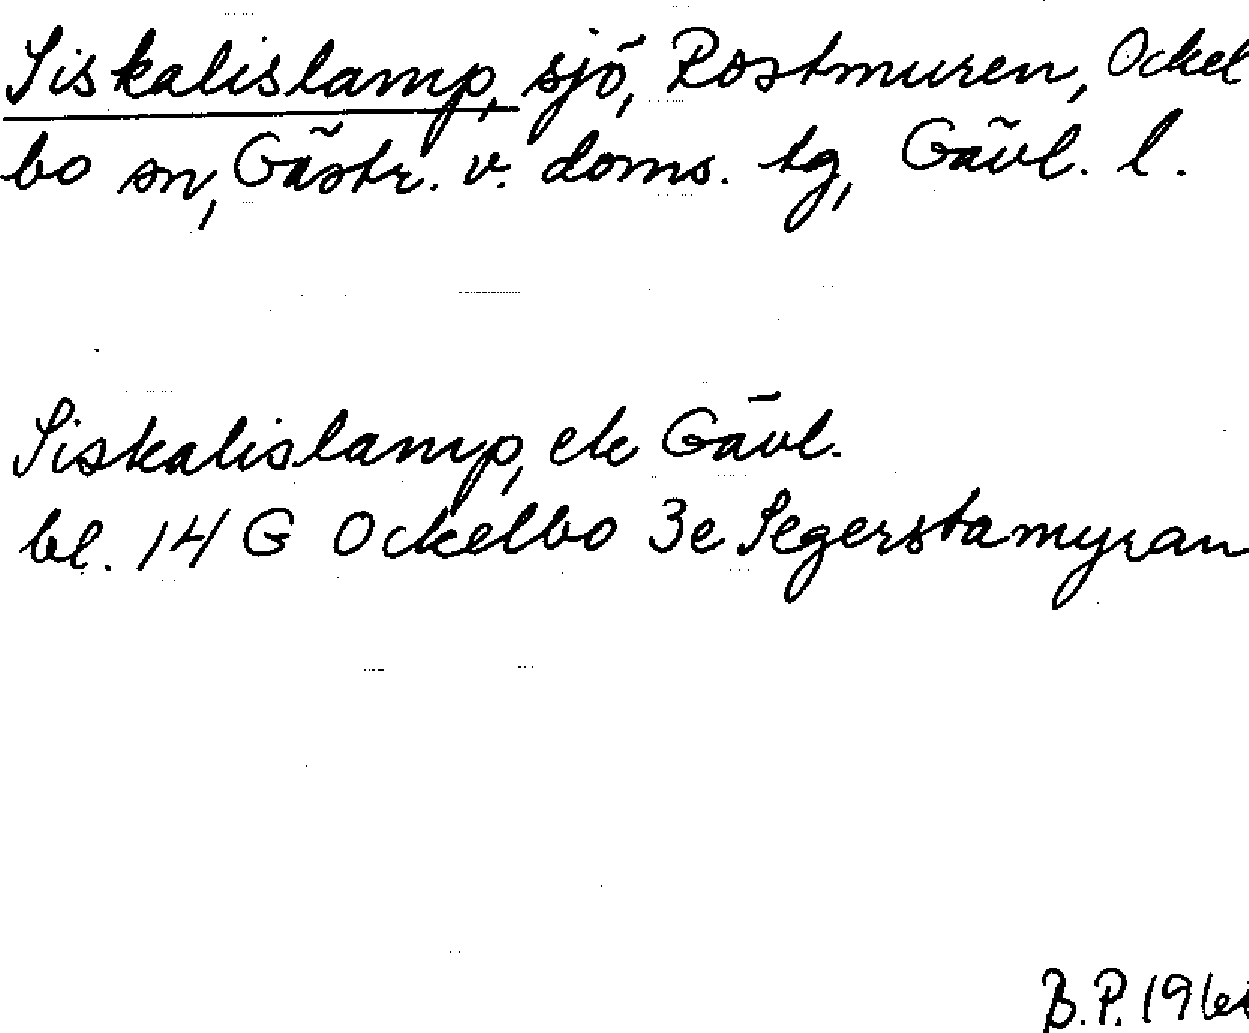 Siskalislamp, sjö, Rostmuren, Ockel
bo sn, Gästr. v. doms. tg, Gävl. l.
Siskalislamp, ek Gävl.
bl. 14 G Ockelbo 3e Segerstamyran
B.P.